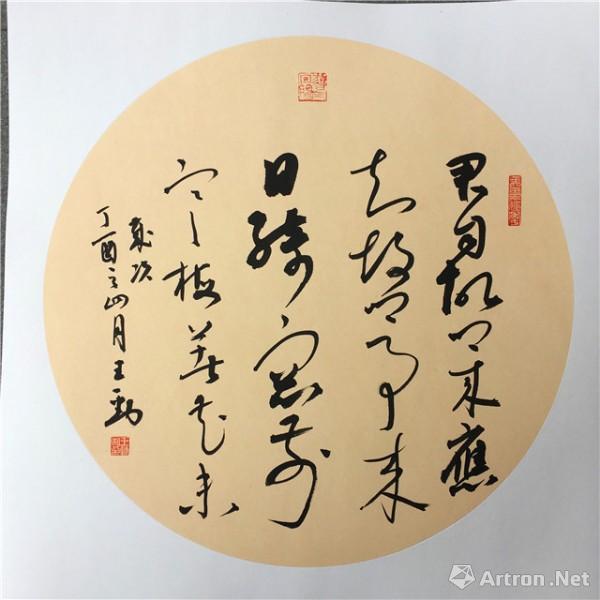 君自故鄉来應
知故鄉事来
日綺窗前
寒梅著花未
歲次
丁酉之四月王
Artron.Net